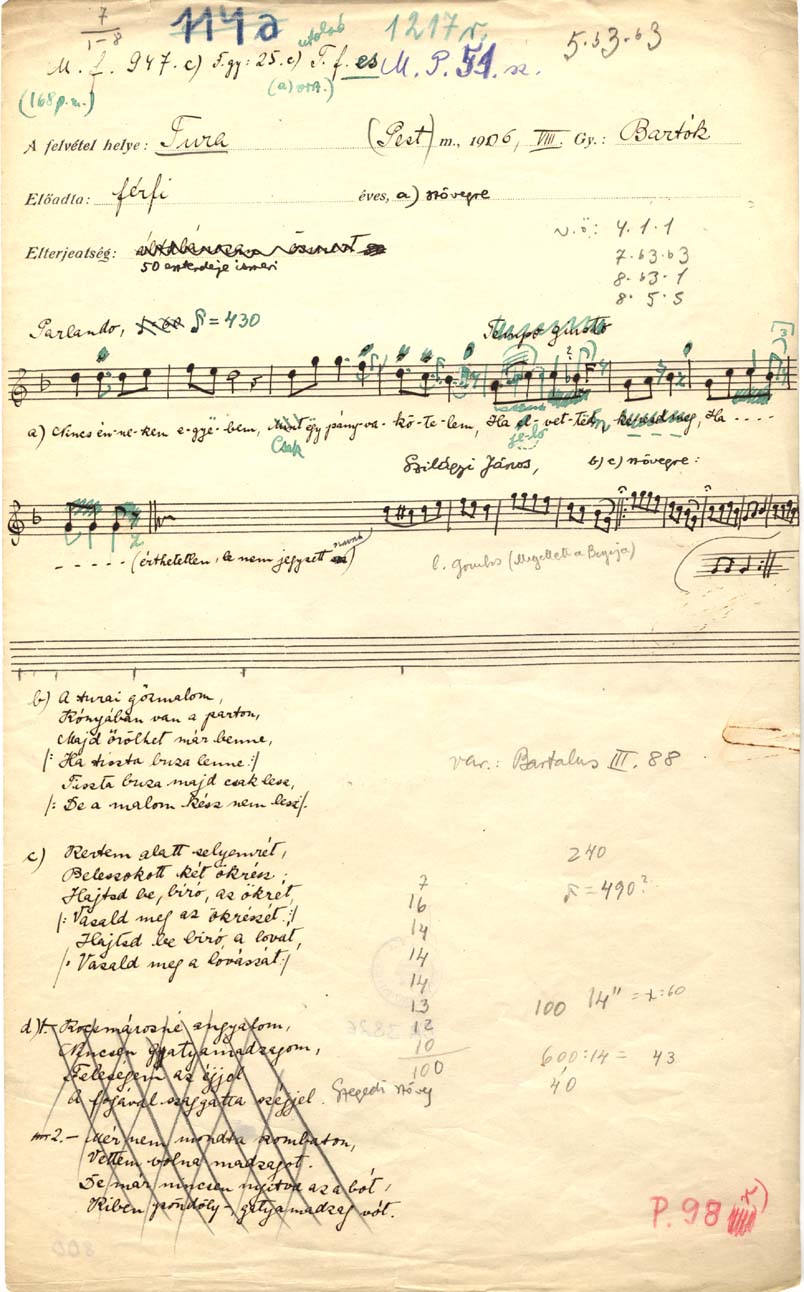 7
1-8
114a
utolsó
1217r.
5.b3.b3
M. f. 947.c) 5.gy: 25.c) T. f. es M. P. 51. sz.
(168 p.m.)
A felvétel helye: Tura (Pest) m., 1906, VIII. Gy.: Bartók
Előadta: férfi éves, a) szövegre
Elterjeatség:
50 esztendeje ismeri
v.ö: 4.1.1
7.b3.b3
8.b3.1
8.5.5
Parlando, = 430 Tempo giusto
a) Nincs én-ne-kem e-gyé-bem, Mint égy pány-va-kö-te-lem, Ha el-vet-ték, meg, Ha - - - -
Csak
Szilágyi János, b) c) szövegre:
- - - - - (érthetetlen, le nem jegyzett szavak)
l. gombos (Megellett a Bogija)
b) A turai gőzmalom,
Rónyában van a parton,
Majd őrölhet már benne,
/: Ha tiszta buza lenne :/
Tiszta buza majd csak lesz,
/: De a malom kész nem lesz :/.
var.: Bartalus III. 88
c) Kertem alatt selyemrét,
Beleszokott két ökrész;
Hajtsd be, biró, az ökrét,
/: Vasald meg az ökrészét. :/
Hajtsd be biró, a lovát,
/: Vasald meg a lovászát :/
240
= 490?
7
16
14
14
14
13
12
10
100
100 14" = :60
600:14 = 43
40
d) 1. Kocsmárosné angyalom,
Nincsen gyatyamadzagom,
Feleségem az éjjel
A fogával szaggatta széjjel.
Szegedi szöveg
2.- Mér nem mondta szombaton,
Vettem volna madzagot.
De már nincsen nyitva az a bót,
Kiben pöndöly-gatyamadzag vót.
P.98